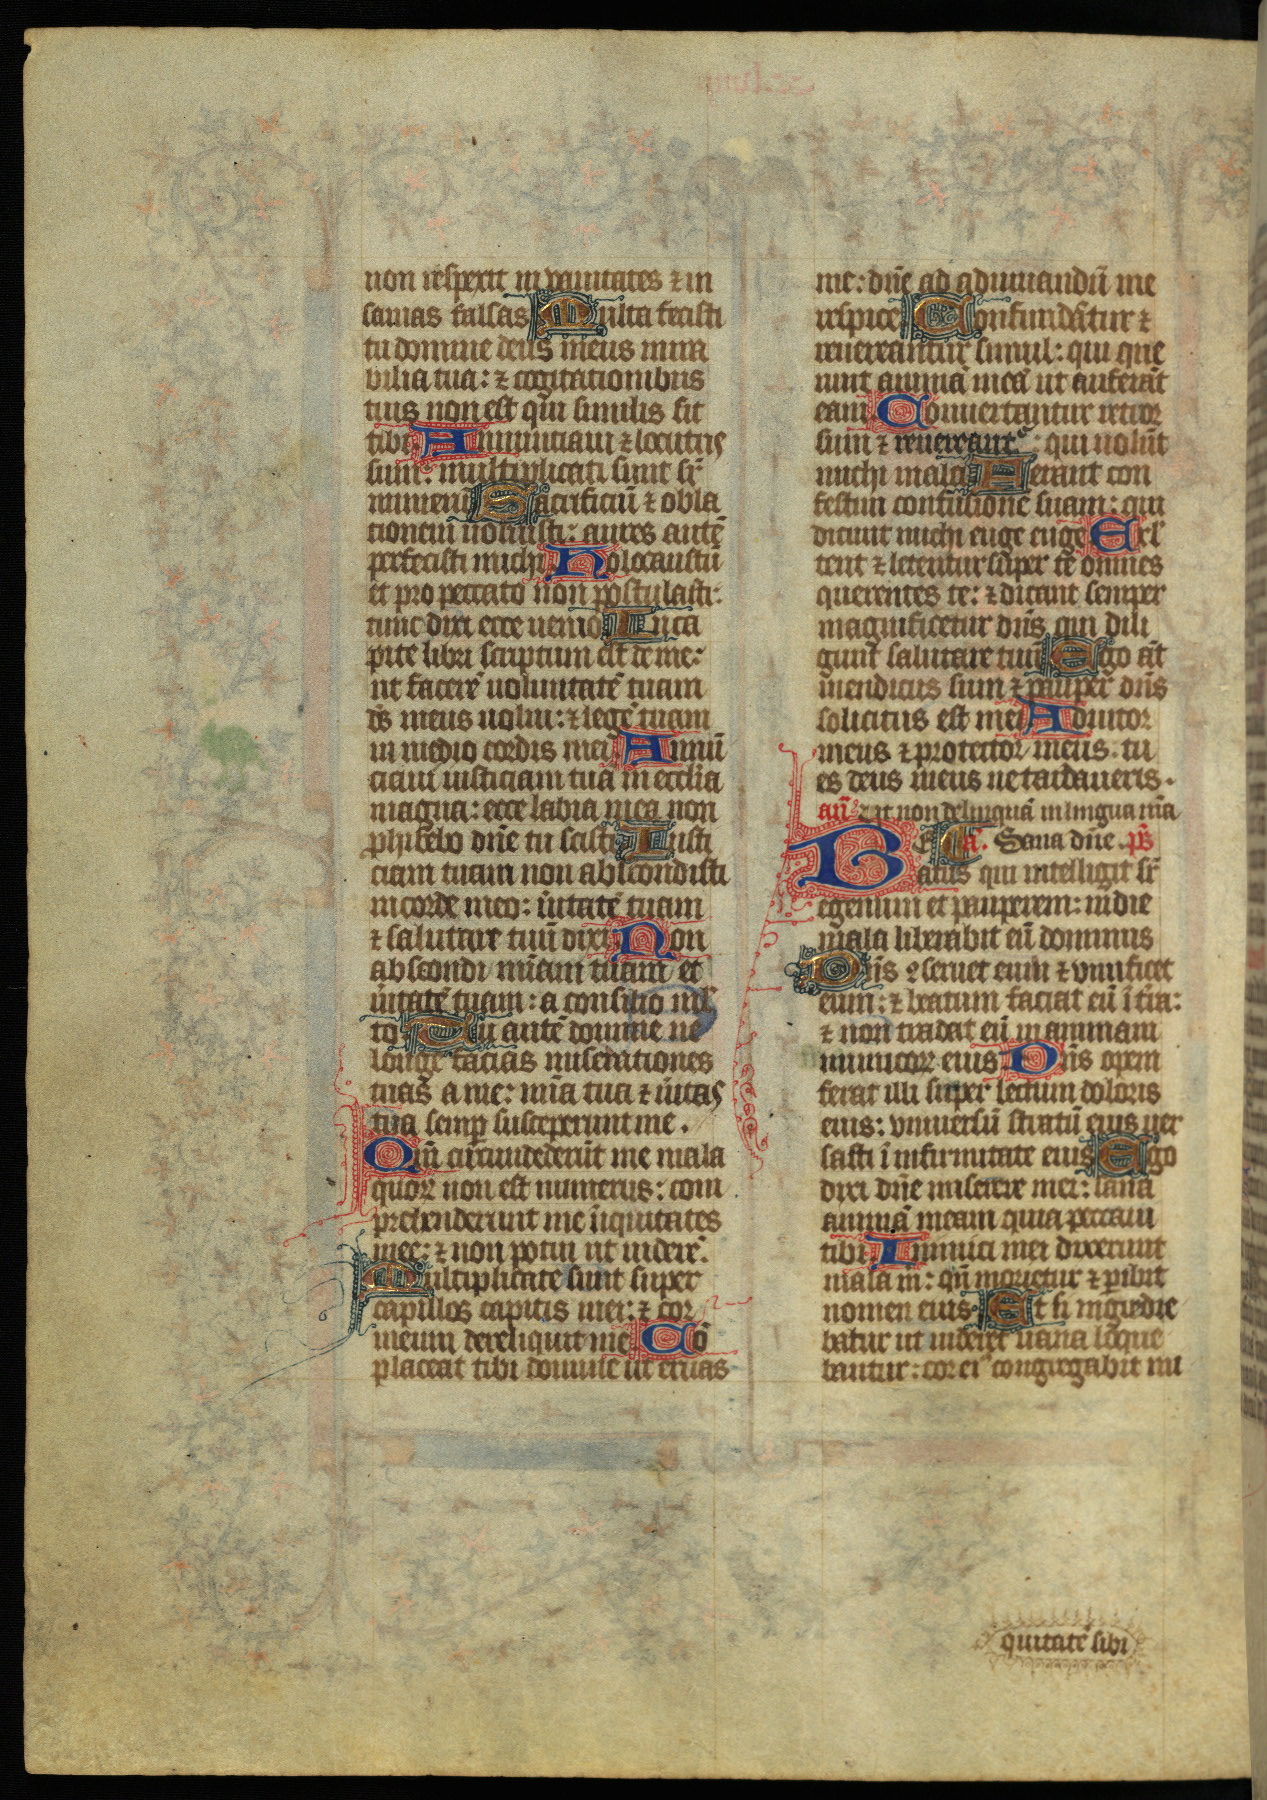 non respexit in vanitates ⁊ in
sanias falsas Multa fecisti
tu domine deus meus mira
bilia tua: ⁊ cogitationibus
tuis non est qui similis sit
tibi Annuntiaui ⁊ locutus
sum: multiplicati sunt sr̄
numerū Sacrificiū ⁊ obla
tionem noluisti: aures autē
perfecisti michi Holocaustū
et pro peccato non postulasti:
tunc dixi ecce uenio In ca
pite libri scriptum est de me:
ut facerē uoluntatē tuam
ds̄ meus uolui: ⁊ legē tuam
in medio cordis mei Annū
ciaui iusticiam tuā in ecctīa
magna: ecce labia mea non
phibebo dn̄e tu scisti Iusti
ciam tuam non abscondisti
in corde meo: ūitatē tuam
⁊ salutare tuū dixi Non
abscondi mīam tuam et
ūitatē tuam: a consilio ml̄
to Tu autē domine ne
longe facias miserationes
tuas a me: mīa tua ⁊ ūitas
tua semp susceperunt me.
Qm̄ circumdederūt me mala
quoꝝ non est numerus: com
prehenderunt me iniquitates
mee: ⁊ non potui ut uiderē.
Multiplicate sunt super
capillos capitis mei: ⁊ cor
meum dereliquit me Cō
placeat tibi domine ut eruas
me: dn̄e ad adiuuandū me
respice Confundātur ⁊
reuereantur simul: qui que
runt animā meā ut auferāt
eam Conuertantur retror
sum ⁊ reuereant᷑: qui uolūt
michi mala Ferant con
festim confusionē suam: qui
dicunt michi euge euge Exl᷑
tent ⁊ letentur super te omnes
querentes te: ⁊ dicant semper
magnificetur dn̄s qui dili
gunt salutare tuū Ego aūt
mendicus sum ⁊ pauper dn̄s
solicitus est mei Adiutor
meus ⁊ protector meus. tu
es deus meus ne tardaueris.
an̄ Ut non delinquā in lingua mīa
A. Sana dn̄e. ps̄
Beatus qui intelligit sr̄
egenum et pauperem: in die
mala liberabit eū dominus
Dn̄s ꝯseruet eum ⁊ viuificet
eum: ⁊ beatum faciat eū ī tr̄a:
⁊ non tradat eū in animam
inimicoꝝ eius Dn̄s opem
ferat illi super lectum doloris
eius: vniuersū stratū eius uer
sasti ī infirmitate eius Ego
dixi dn̄e miserere mei: sana
animā meam quia peccaui
tibi Inimici mei dixerunt
mala m̄: qn̄ morietur ⁊ pibit
nomen eius Et si ingredie
batur ut uideret uana loque
bantur: cor ei᷒ congregabit ini
quitatē sibi